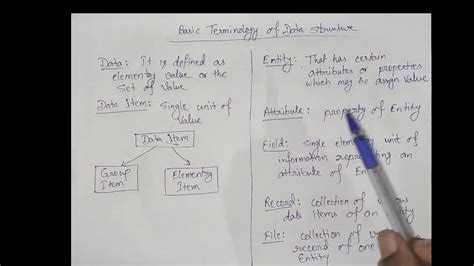 Basic Terminology of Data Structure
Data: It is defined as
elementry value or the
Set of Value
Data Item: Single unit of
Value
Data Item
Group
Item
Elementry
Item
Entity: That has certain
attributes or properties
which may be assign value
Attribute: property of Entity
Field: Single elementry unit of
information representing an
attribute of
Record: collection of
data items of an
File: collection of
record of one
Entity